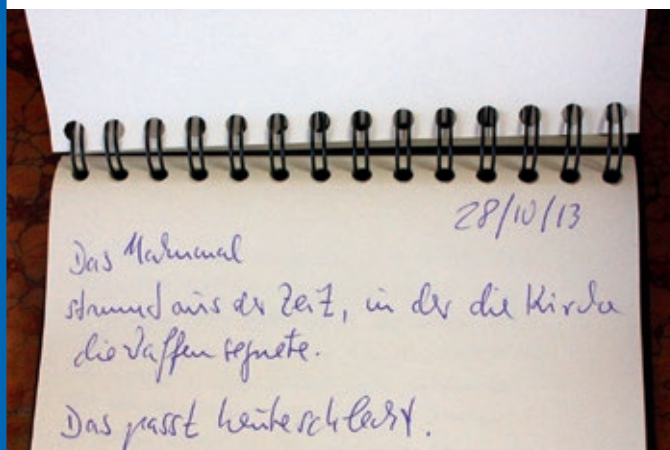 28/10/13
Das Mahnmal
stammt aus der Zeit, in der die Kirche
die Waffen segnete.
Das passt heute schlecht.